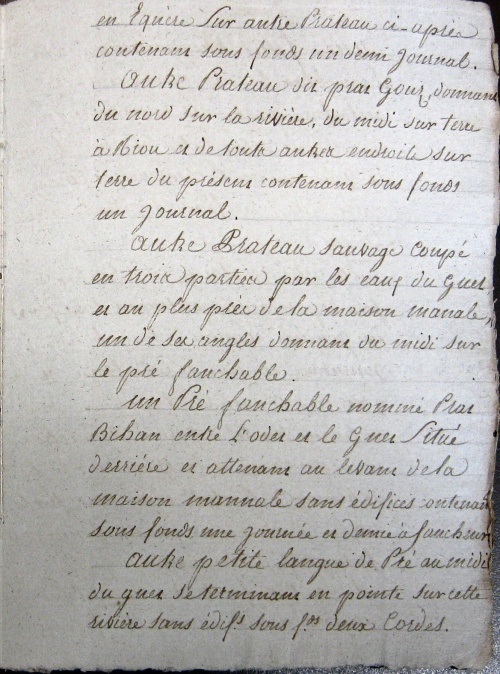 en Equère Sur autre Prateau ci-après
contenant sous fonds un demi journal.
Autre Prateau dit prar Gouz, donnant
du nord sur la rivière, du midi sur terre
à Riou et de touts autres endroits sur
terre du présent contenant sous fonds
un journal.
Autre Prateau sauvage coupé
en trois parties par les eaux du Guer
et au plus près de la maison manale,
un de ses angles donnant du midi sur
le pré fauchable.
un Pré fauchable nommé Prar
Bihan entre l'odet et le Guer Situé
derrière et attenant au levant de la
maison mannale sans édifices contenant
sous fonds une journée et demie à faucheur
Autre petite langue de Pré au midi
du guer se terminant en pointe sur cette
rivière sans édifs sous f.ds deux Cordes.